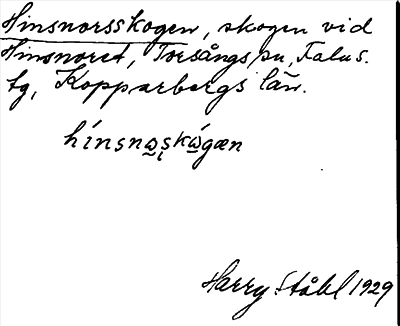 Hinsnorsskogen, skogen vid
Hinsnoret, Torsångs sn, Falu s.
tg, Kopparbergs län.
hínsnω̲ṣkώ̲gæn
Harry Ståhl 1929